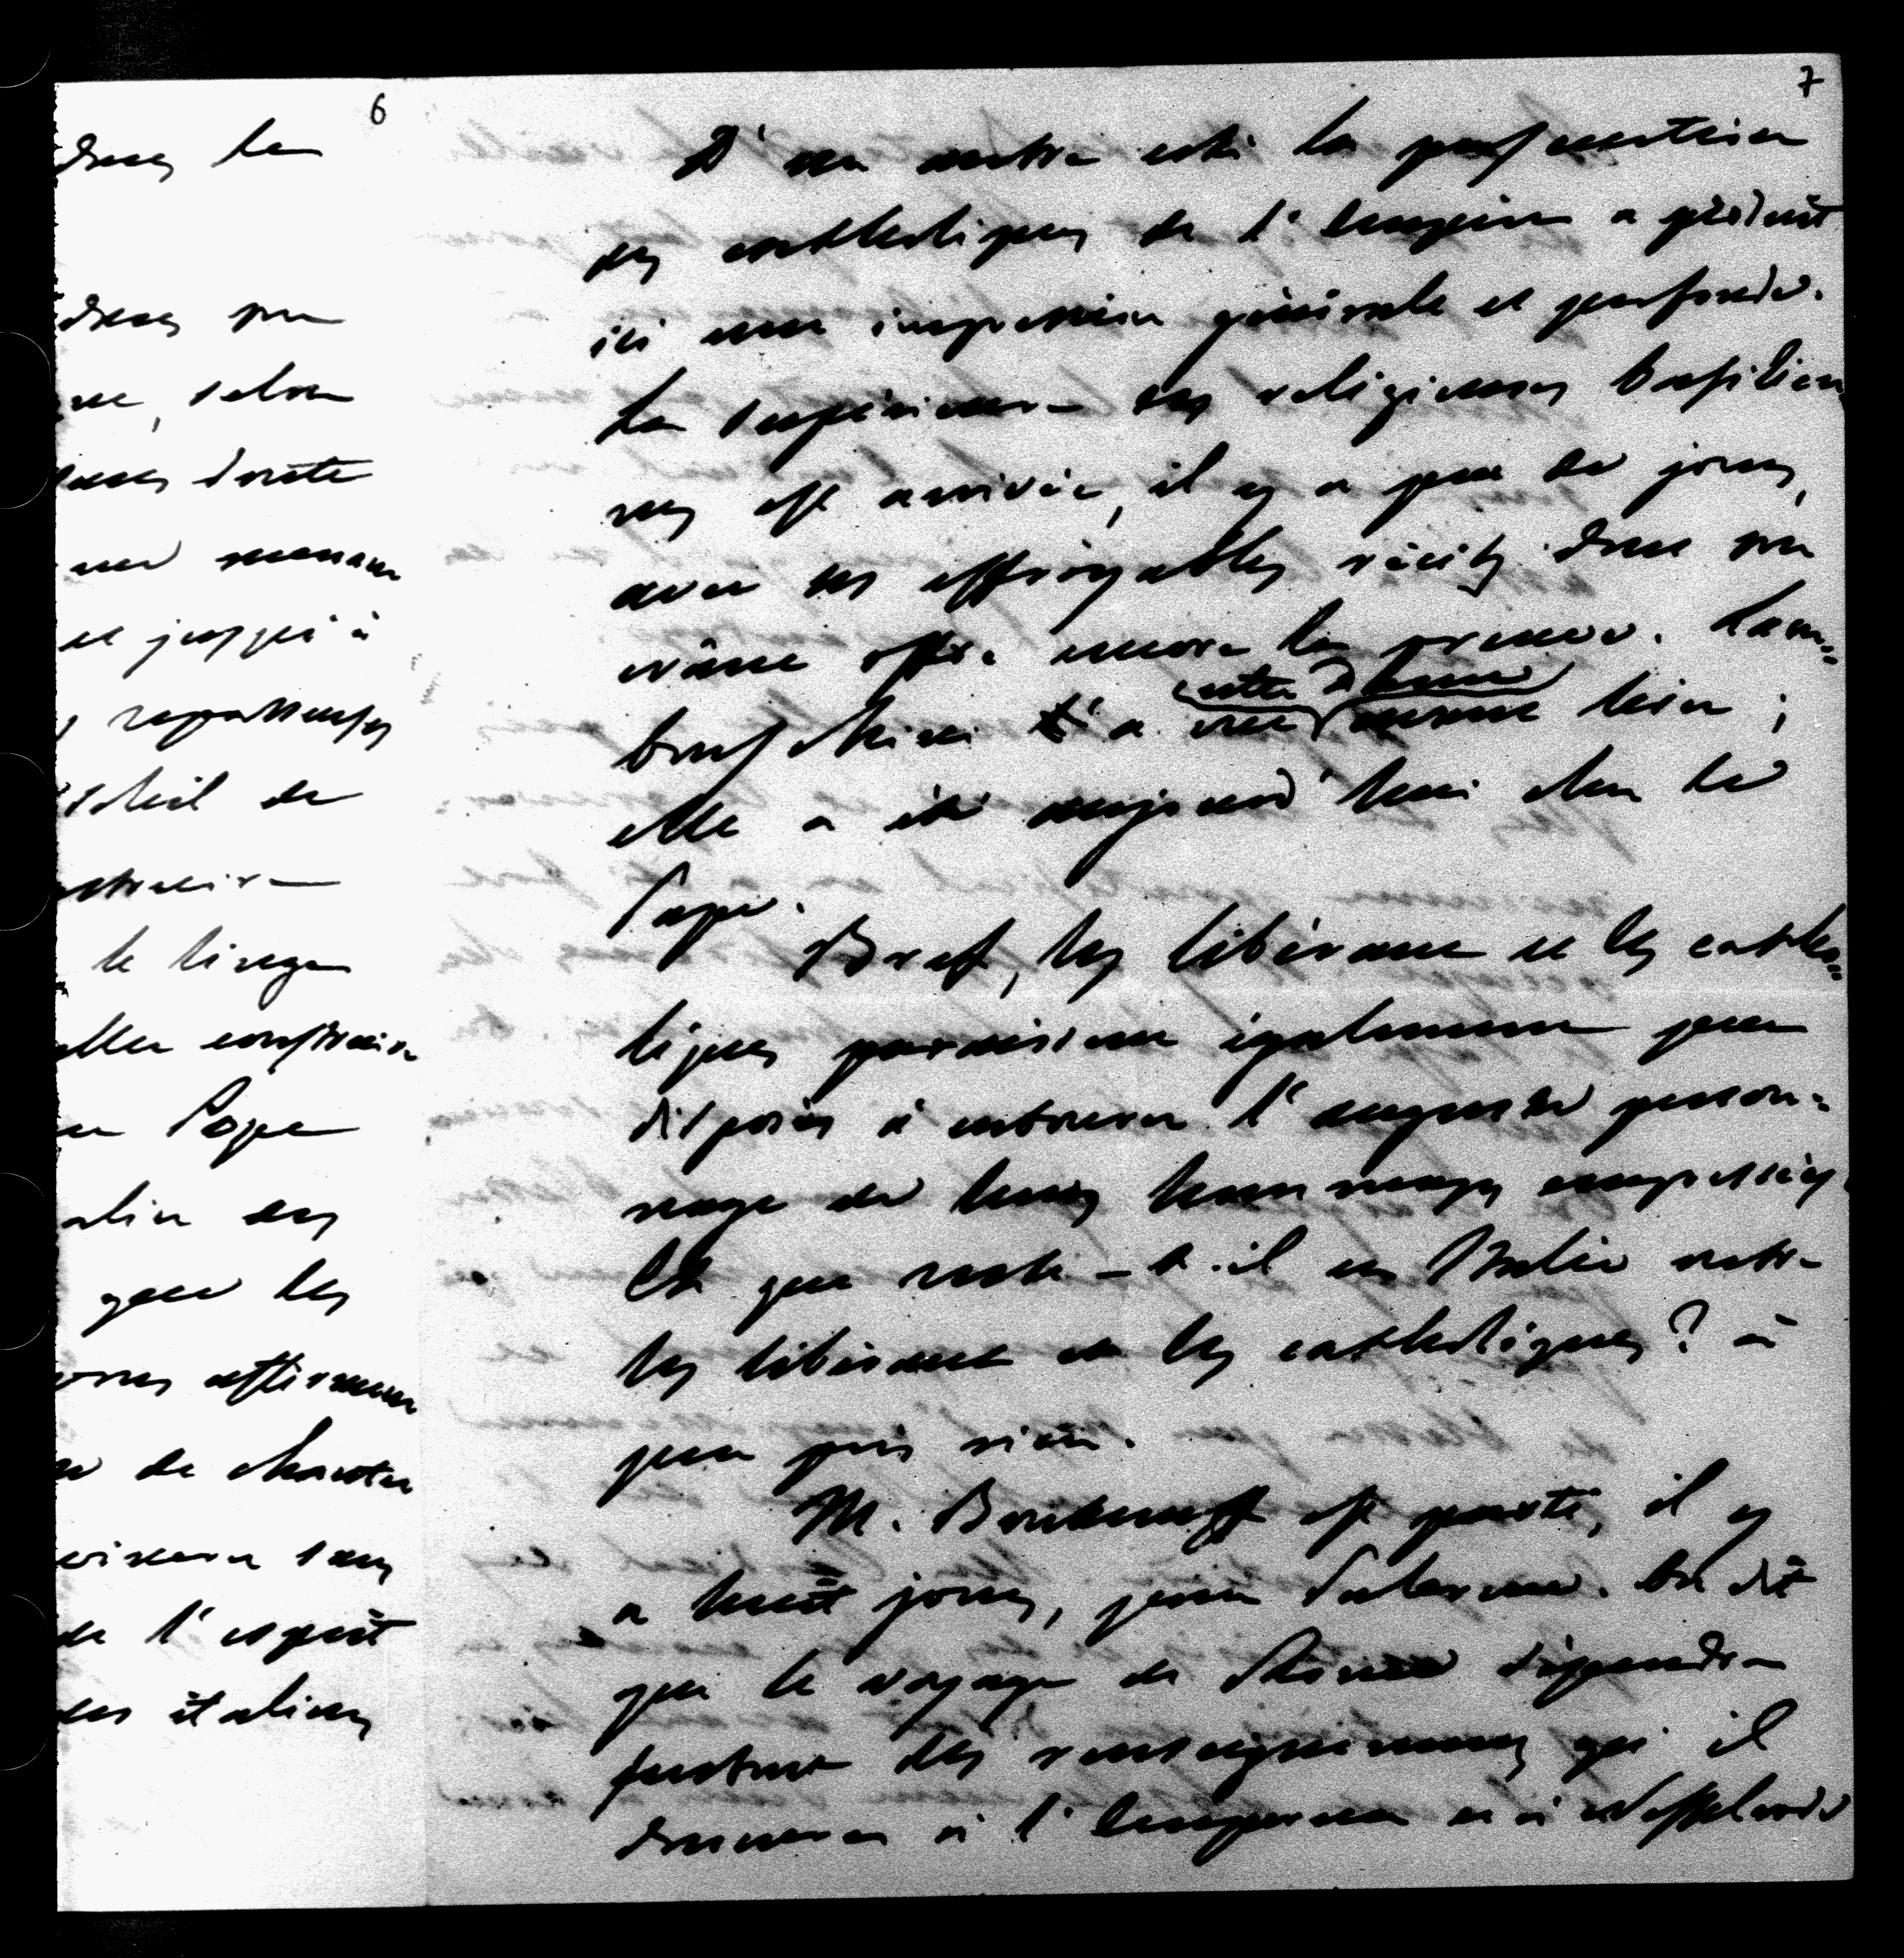 6
dans la
dans son
selon
toute
et jusqu'à
soleil de
le linge
constitution
Pape
des
que les
affirment
de chanter
sans
de l'esprit
des italiens
7
D'un autre côté la persécution
des catholiques de l'empire a produit
ici une impression générale et profonde.
La supérieure des religieuses basilien
nes est arrivée, il y a peu de jours,
avec les effroyables récits dont son
crâne offre encore la preuve. Lam=
bruschini l'a vue cette dame hier ;
elle a été aujourd'hui chez le
Pape.
Bref, les libéraux et les catho=
liques paraissent également peu
disposés à entourer l'auguste person=
nage de leurs hommages empressés
Et que reste-t-il en Italie entre
les libéraux et les catholiques ? à
peu près rien.
M. Boutenieff est parti, il y
a huit jours, pour Palerme. On dit
que le voyage de Rome dépendra
surtout des renseignements qu'il
donnera à l'Empereur et à Nesselrode